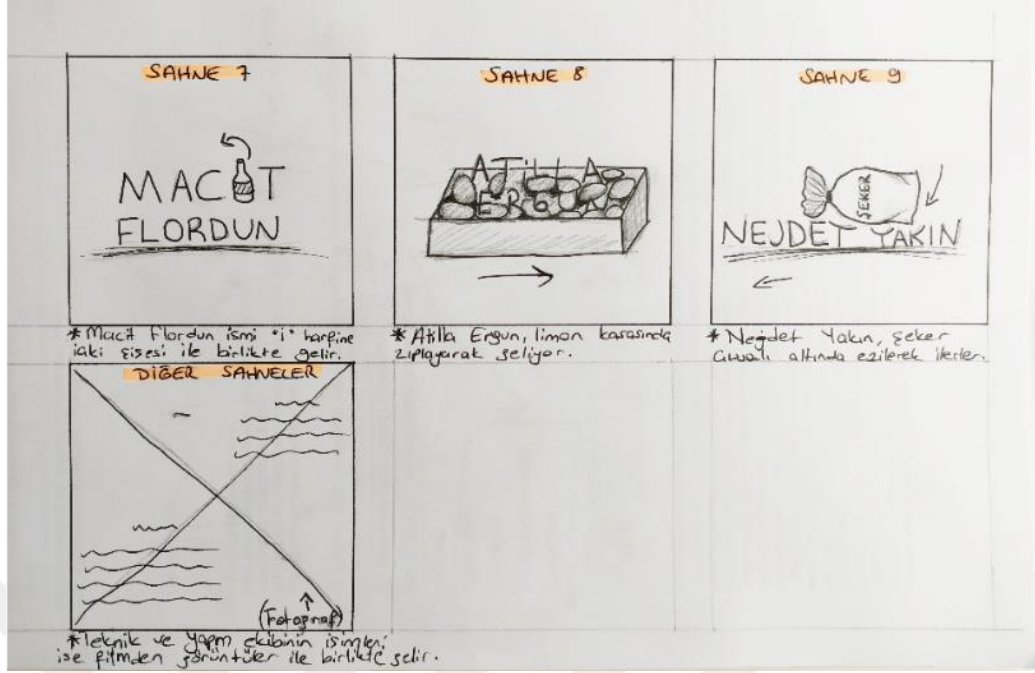 SAHNE 7
MACİT
FLORDUN
* Macit Flordun ismi "i" harfine
rakı şişesi ile birlikte gelir.
SAHNE 8
ATİLLA
ERGUN
* Atilla Ergun, limon kasasında
zıplayarak geliyor.
SAHNE 9
ŞEKER
NEJDET YAKIN
* Nejdet Yakın, şeker
çuvalı altında ezilerek ilerler.
DİĞER SAHNELER
(Fotoğraf)
* Teknik ve yapım ekibinin isimleri
ise filmden görüntüler ile birlikte gelir.